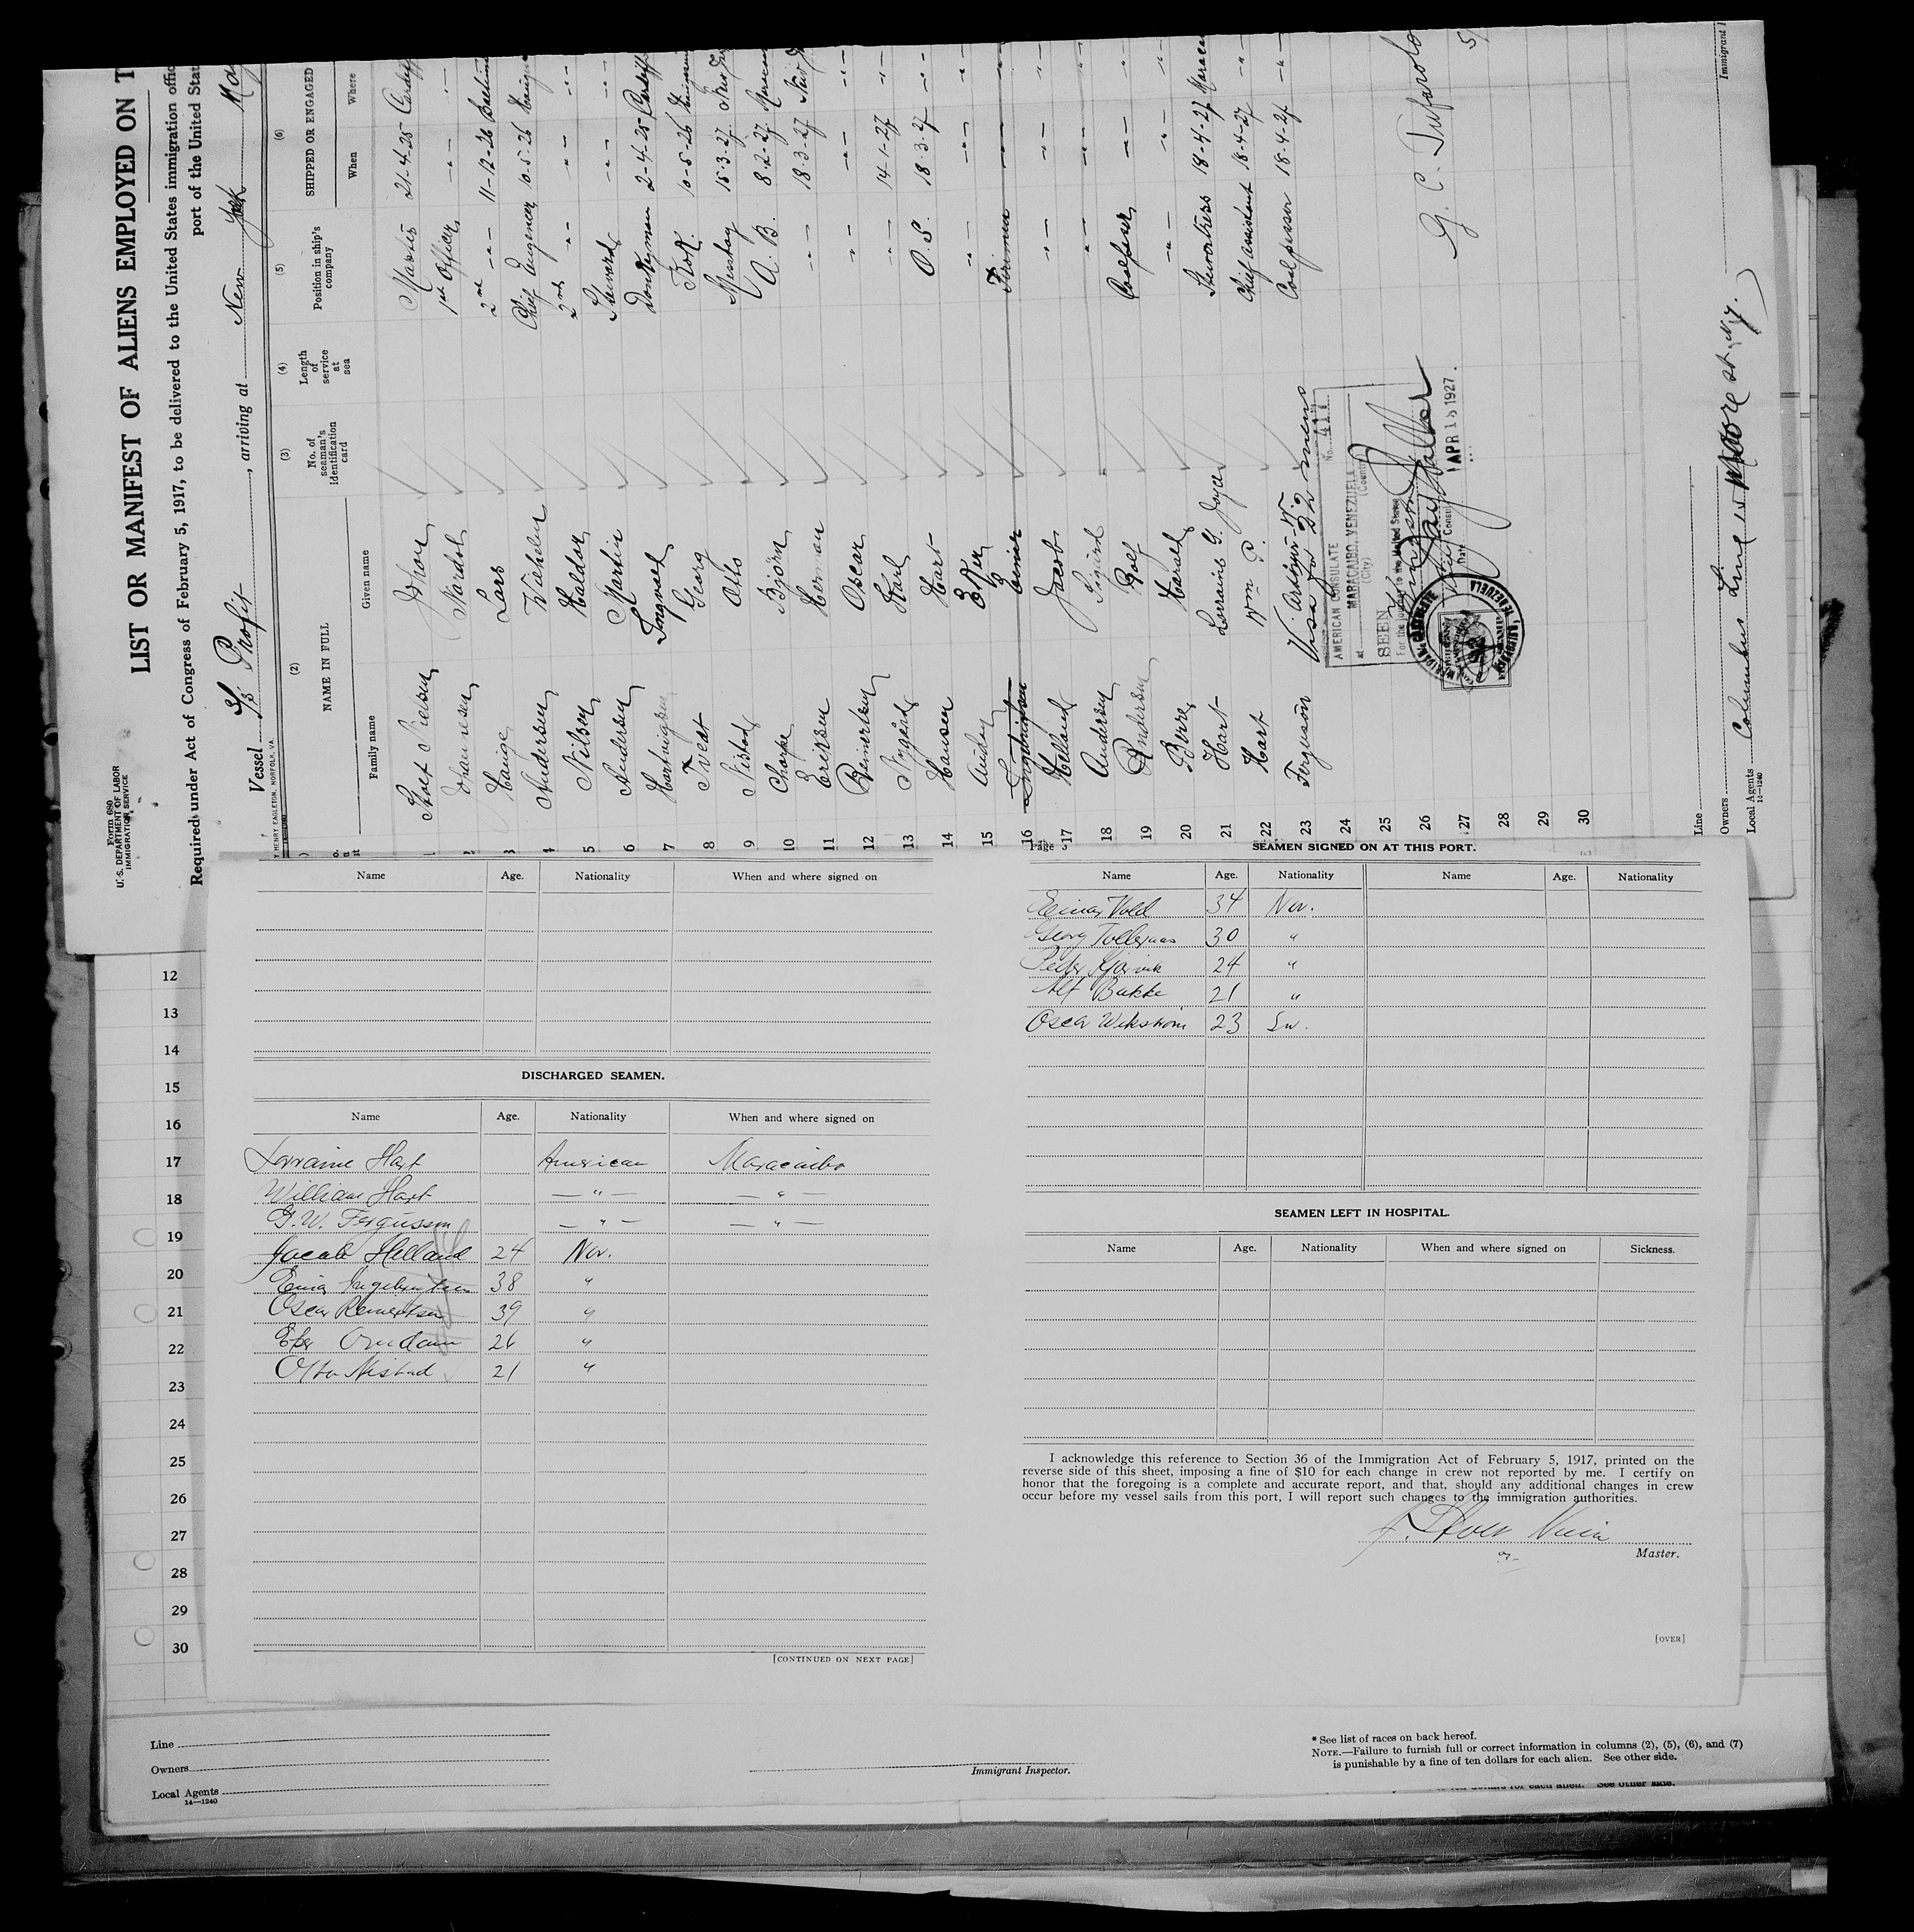 Form 680
U. S. DEPARTMENT OF LABOR
IMMIGRATION SERVICE
LIST OR MANIFEST OF ALIENS EMPLOYED ON T
Required under Act of Congress of February 5, 1917, to be delivered to the United States immigration offic
port of the United Stat
Vessel S/s Profit, arriving at New York
HENRY EAGLETON, NORFOLK, VA.
(2) (3) (4) (5) (6)
NAME IN FULL No. of seaman's identification card Length of service at sea Position in ship's company SHIPPED OR ENGAGED
Family name Given name When Where
1 Master 21-4-25 Cardiff
2 1st Officer -"- -"-
3 Hauge Lars 2nd -"- 11-12-26
4 Andersen Chief Engeneer 10-5-26
5 Nilsen Haldor 2nd -"- -"- -"-
6 Andersen Martin Steward -"- -"-
7 Hartvigsen Ingvald Donkyman 2-4-25 Cardiff
8 Tveat Georg Kok. 10-5-26
9 Nistad Otto Messboy 15-3-27
10 Bjørn A. B. 8-2-27
11 Eriksen Herman -"- 18-3-27
12 Reinertsen Oscar -"- -"- -"-
13 Nygård Karl -"- 14-1-27 -"-
14 Hansen Hart O. S. 18-3-27 -"-
15 -"- -"- -"-
16 Einar Fireman -"- -"-
17 Helland Jacob -"- -"- -"-
18 Andersen Sigurd -"- -"- -"-
19 Andersen Rolf Coalpasser -"- -"-
20 Berre Harald -"- -"- -"-
21 Hart Lorrains G. Joyce 18-4-27
22 Hart Wm P. Chief assistant 18-4-27 -"-
23 Ferguson Coalpasser 18-4-27 -"-
24
25
26
27
28
29
30
Visa for 22 mens
AMERICAN CONSULATE
No. 411
at MARACAIBO, VENEZUELA
(City) (Country)
SEEN
For the journey to the United States
Consul
Date APR 18 1927
Line
Owners
Local Agents Columbus Line 15 Moore st, N.Y.
14—1240
Immigrant I
Name Age. Nationality When and where signed on
DISCHARGED SEAMEN.
Name Age. Nationality When and where signed on
Lorraine Hart American Maracaibo
William Hart — " — — " —
G. W. Fergusson — " — — " —
Jacob Helland 24 Nor.
38 "
Oscar Reinertsen 39 "
26 "
Otto Nistad 21 "
[CONTINUED ON NEXT PAGE]
Page
SEAMEN SIGNED ON AT THIS PORT.
Name Age. Nationality Name Age. Nationality
Einar Vold 34 Nor.
Georg 30 "
Peder 24 "
Alf Bakke 21 "
Oscar Wikstrom 23 Sw.
SEAMEN LEFT IN HOSPITAL.
Name Age. Nationality When and where signed on Sickness.
I acknowledge this reference to Section 36 of the Immigration Act of February 5, 1917, printed on the
reverse side of this sheet, imposing a fine of $10 for each change in crew not reported by me. I certify on
honor that the foregoing is a complete and accurate report, and that, should any additional changes in crew
occur before my vessel sails from this port, I will report such changes to the immigration authorities.
Master.
[OVER]
12
13
14
15
16
17
18
19
20
21
22
23
24
25
26
27
28
29
30
Line
Owners
Local Agents
14—1240
Immigrant Inspector.
* See list of races on back hereof.
NOTE.—Failure to furnish full or correct information in columns (2), (5), (6), and (7)
is punishable by a fine of ten dollars for each alien. See other side.